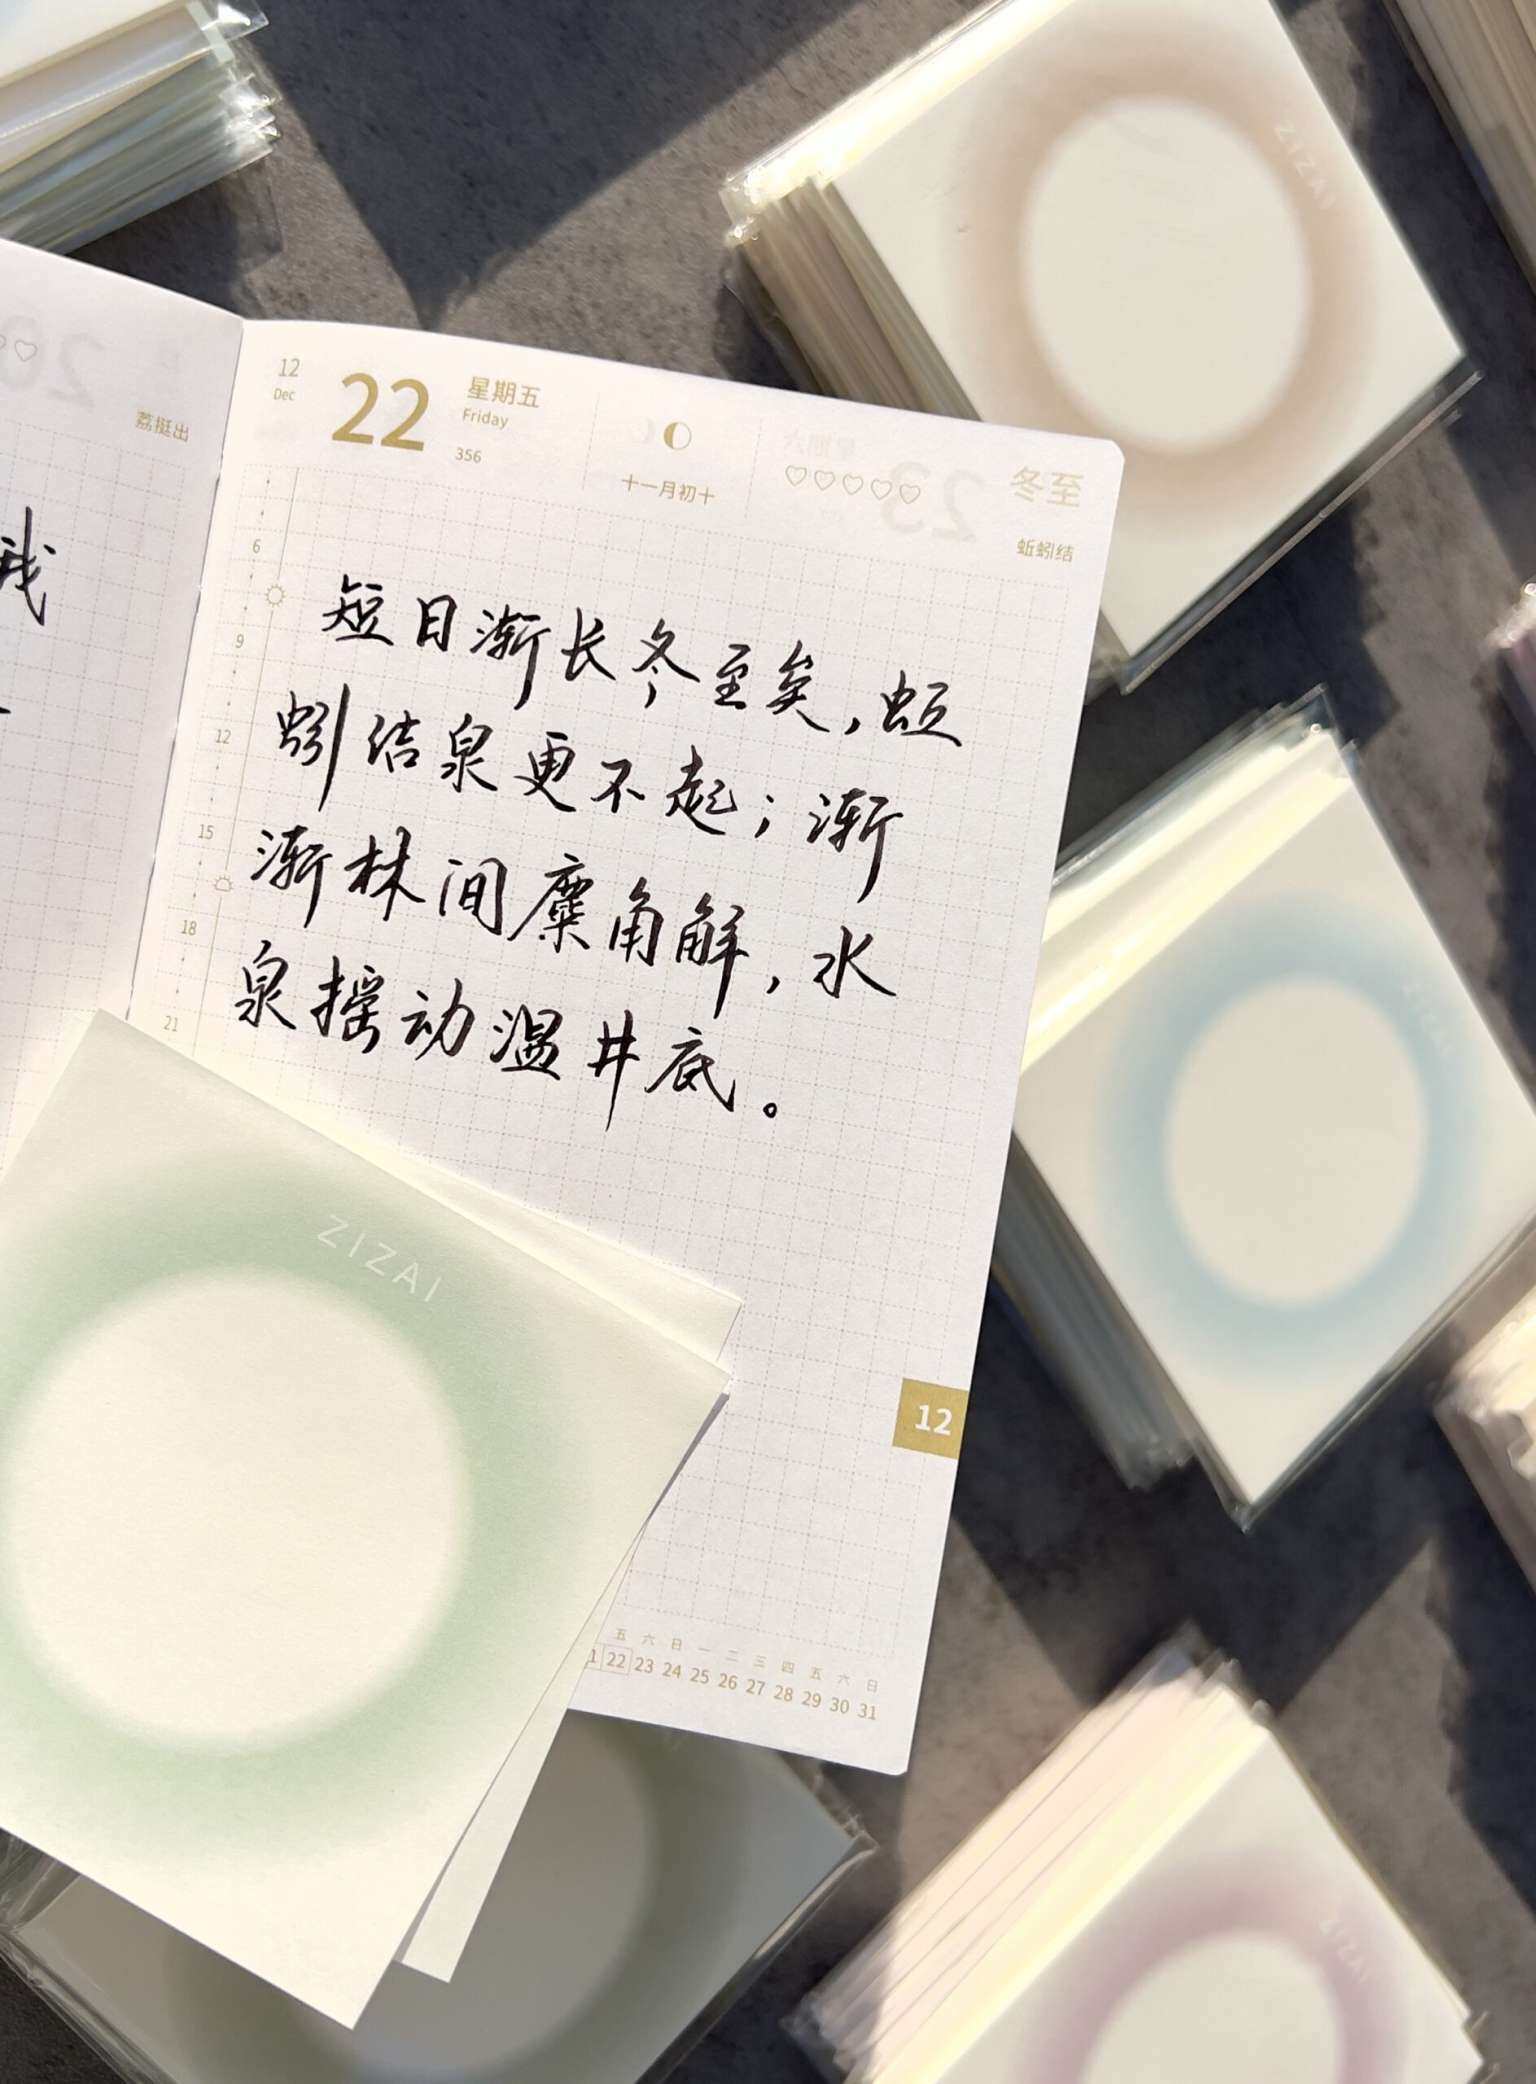 荔挺出
我
12
Dec
22
星期五
Friday
356
十一月初十
冬至
蚯蚓结
6
9
12
15
18
21
短日渐长冬至矣，蚯
蚓结泉更不起；渐
渐林间麋角解，水
泉摇动温井底。
12
五 六 日 一 二 三 四 五 六 日
22 23 24 25 26 27 28 29 30 31
ZIZAI
ZIZAI
ZIZAI
ZIZAI